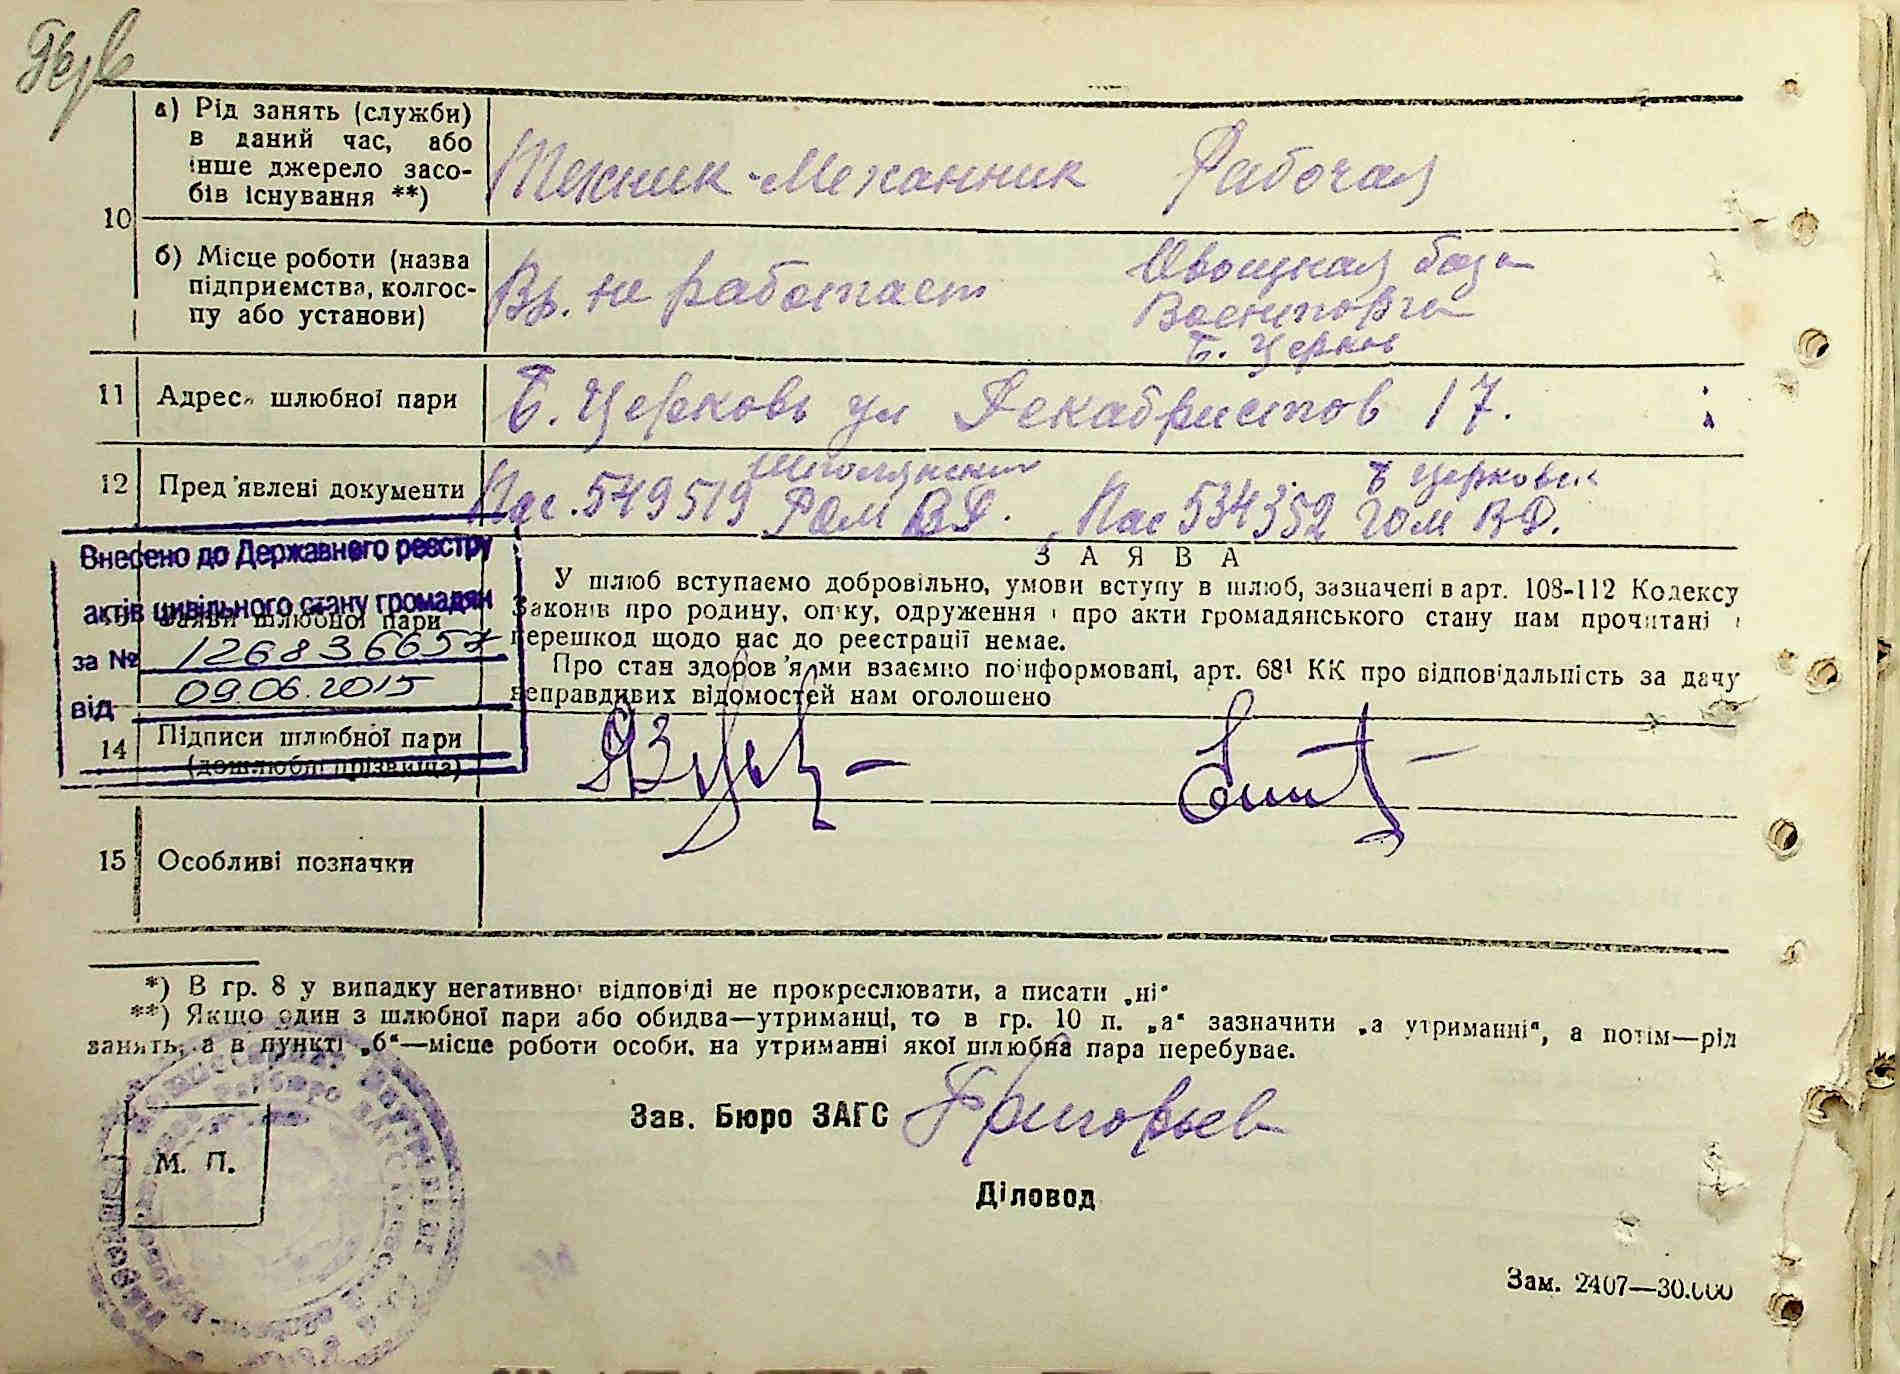 а) Рід занять (служби)
в даний час, або
інше джерело засо-
бів існування **)
Техник-Механник Рабочая
10
б) Місце роботи (назва
підприємства, колгос-
пу або установи)
Вр. не работает
Овощная база
Военторга
Б. Церковь
11 Адреса шлюбної пари
Б. Церковь ул Декабристов 17.
12 Пред'явлені документи
Пас. 549519 Шполянским РОМ ВД. Пас 534352 Б Церковск ГОМ ВД.
Внесено до Державного реєстру
актів цивільного стану громадян
Заяви шлюбної пари
за № 126836657
від 09.06.2015
ЗАЯВА
У шлюб вступаємо добровільно, умови вступу в шлюб, зазначені в арт. 108-112 Кодексу
Законів про родину, опіку, одруження і про акти громадянського стану нам прочитані і
перешкод щодо нас до реєстрації немає.
Про стан здоров'я ми взаємно поінформовані, арт. 68¹ КК про відповідальність за дачу
неправдивих відомостей нам оголошено
14 Підписи шлюбної пари
(дошлюбні прізвища)
15 Особливі позначки
*) В гр. 8 у випадку негативної відповіді не прокреслювати, а писати „ні“
**) Якщо один з шлюбної пари або обидва—утриманці, то в гр. 10 п. „а“ зазначити „а утриманні“, а потім—рід
занять, а в пункті „б“—місце роботи особи, на утриманні якої шлюбна пара перебуває.
Зав. Бюро ЗАГС Григорьев
М. П.
Діловод
Зам. 2407—30.000